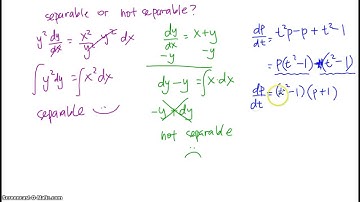 separable or not separable?
y² dy/dx = x²/y² y² dx
∫y²dy = ∫x²dx
separable
dy/dx = x+y
-y -y
dy-y = ∫x·dx
-y+dy
not separable
dp/dt = t²p-p+t²-1
= p(t²-1)+(t²-1)
dp/dt = (t²-1)(p+1)
Screencast-O-Matic.com